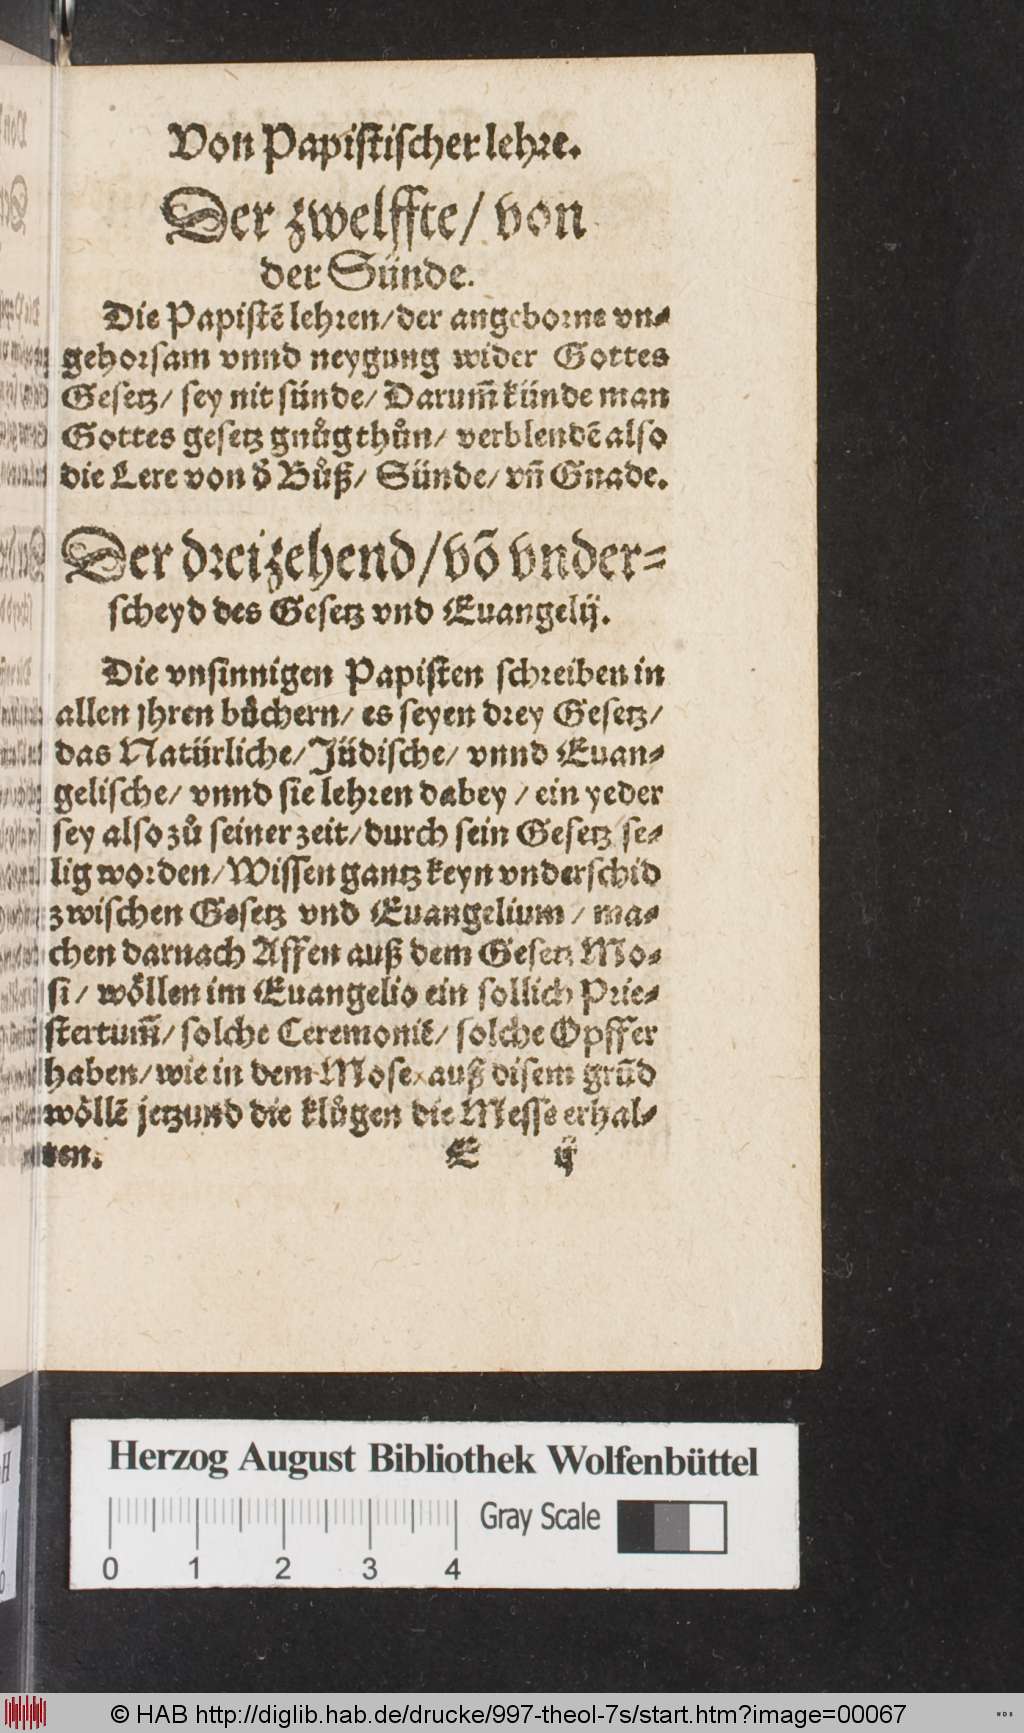 Von Papistischer lehre.
Der zwelffte/ von
der Sünde.
Die Papistẽ lehren/der angeborne vn-
gehorsam vnnd neygung wider Gottes
Gesetz/ sey nit sünde/ Darum̃ künde man
Gottes gesetz gnůg thůn/ verblendẽ also
die Lere von ð Bůß/ Sünde/ vñ Gnade.
Der dreizehend/võ vnder-
scheyd des Gesetz vnd Euangelij.
Die vnsinnigen Papisten schreiben in
allen jhren bůchern/ es seyen drey Gesetz/
das Natürliche/Jüdische/ vnnd Euan-
gelische/ vnnd sie lehren dabey / ein yeder
sey also zů seiner zeit/durch sein Gesetz se-
lig worden/Wissen gantz keyn vnderschid
zwischen Gesetz vnd Euangelium / ma-
chen darnach Affen auß dem Gesetz Mo-
si/ wöllen im Euangelio ein sollich Prie-
stertum̃/ solche Ceremoniẽ/ solche Opffer
haben/wie in dem Mose auß disem grũd
wöllẽ jetzund die klůgen die Messe erhal-
ten. E ij
Herzog August Bibliothek Wolfenbüttel
Gray Scale
0 1 2 3 4
© HAB http://diglib.hab.de/drucke/997-theol-7s/start.htm?image=00067